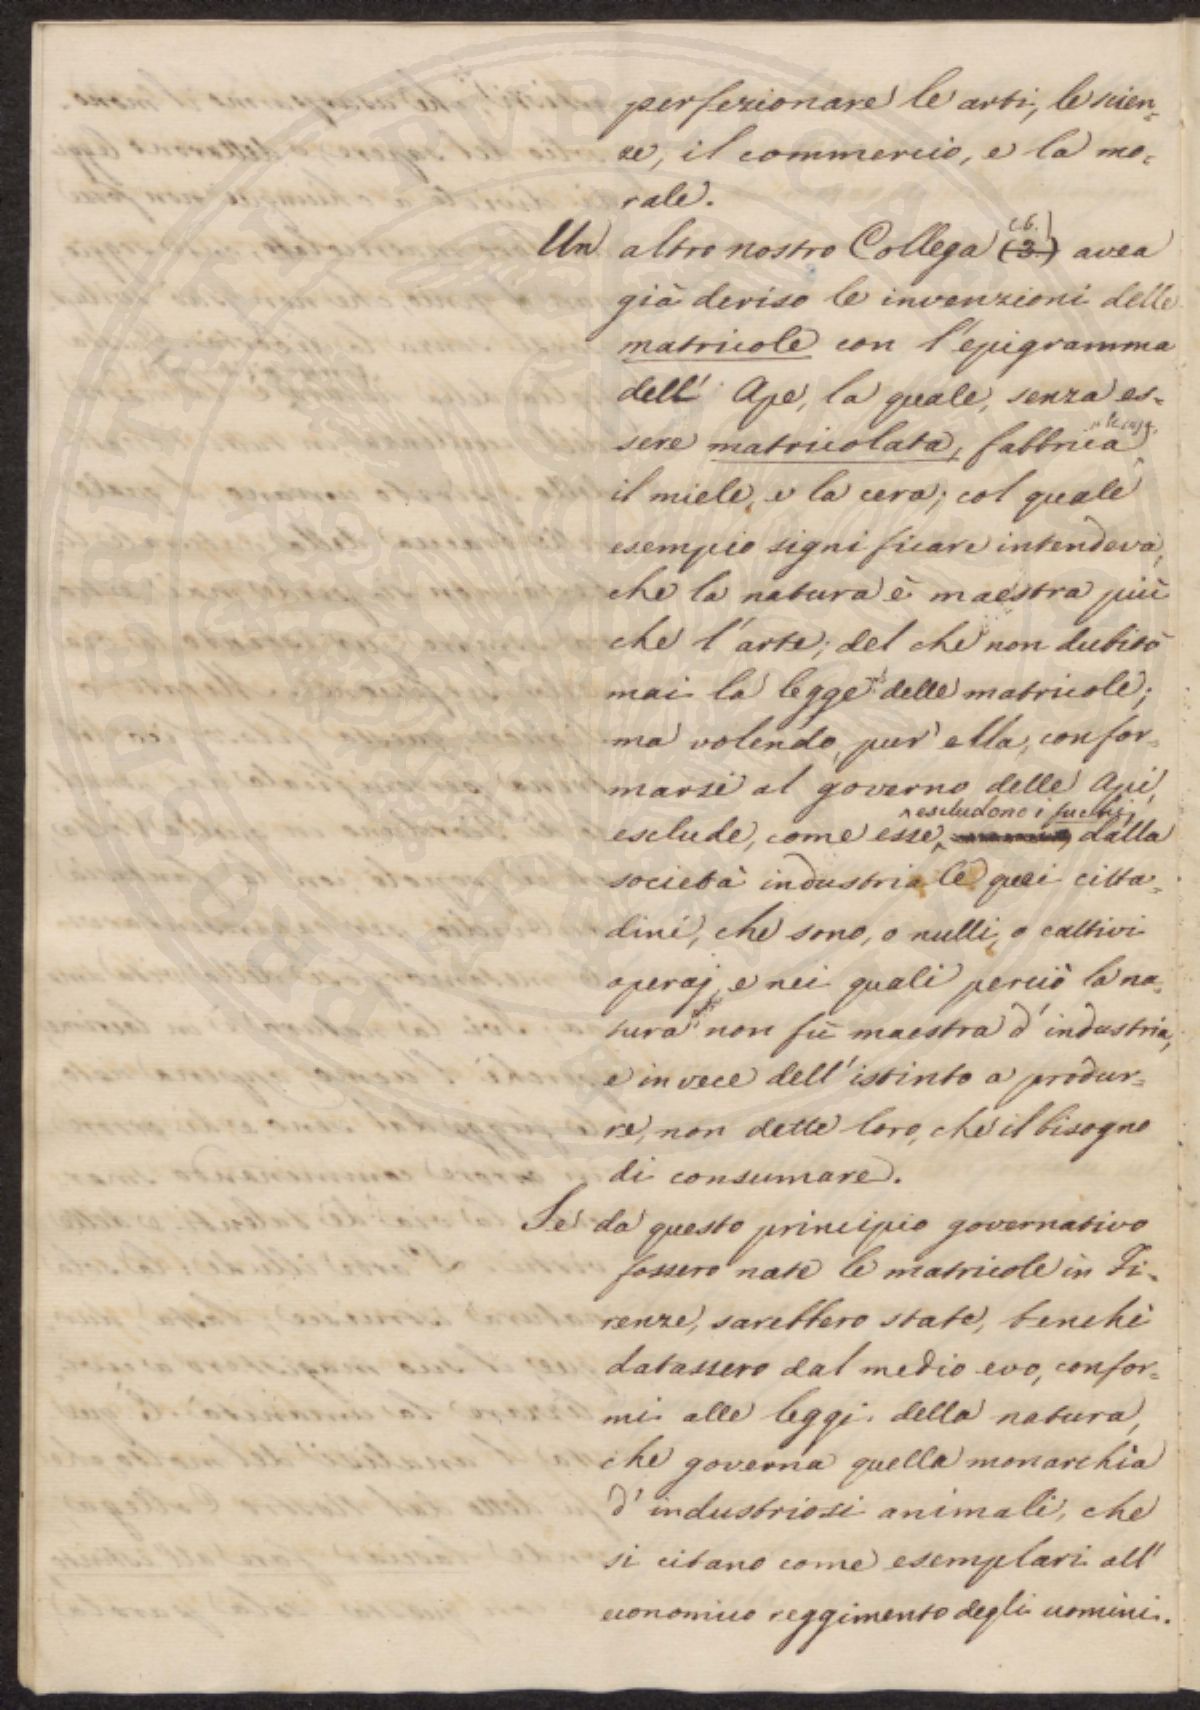 perfezionare le arti, le scien=
ze, il commercio, e la mo=
rale.
Un altro nostro Collega (3) avea
già deriso le invenzioni delle
matricole con l'epigramma
dell' Ape, la quale, senza es=
sere matricolata, fabbrica
il miele, e la cera; col quale
esempio significare intendeva,
che la natura è maestra più
che l'arte; del che non dubitò
mai la legge delle matricole;
ma volendo, pur' ella, confor=
marsi al governo delle Api,
escludono i fuchi,
esclude, come esse, dalla
società industriale quei citta=
dini, che sono, o nulli, o cattivi
operaj, e nei quali perciò la na=
tura non fù maestra d' industria,
e invece dell' istinto a produr=
re, non dette loro, che il bisogno
di consumare.
Se da questo principio governativo
fossero nate le matricole in Fi=
renze, sarebbero state, benchè
datassero dal medio evo, confor=
mi alle leggi della natura,
che governa quella monarchia
d' industriosi animali, che
si citano come esemplari all'
economico reggimento degli uomini.